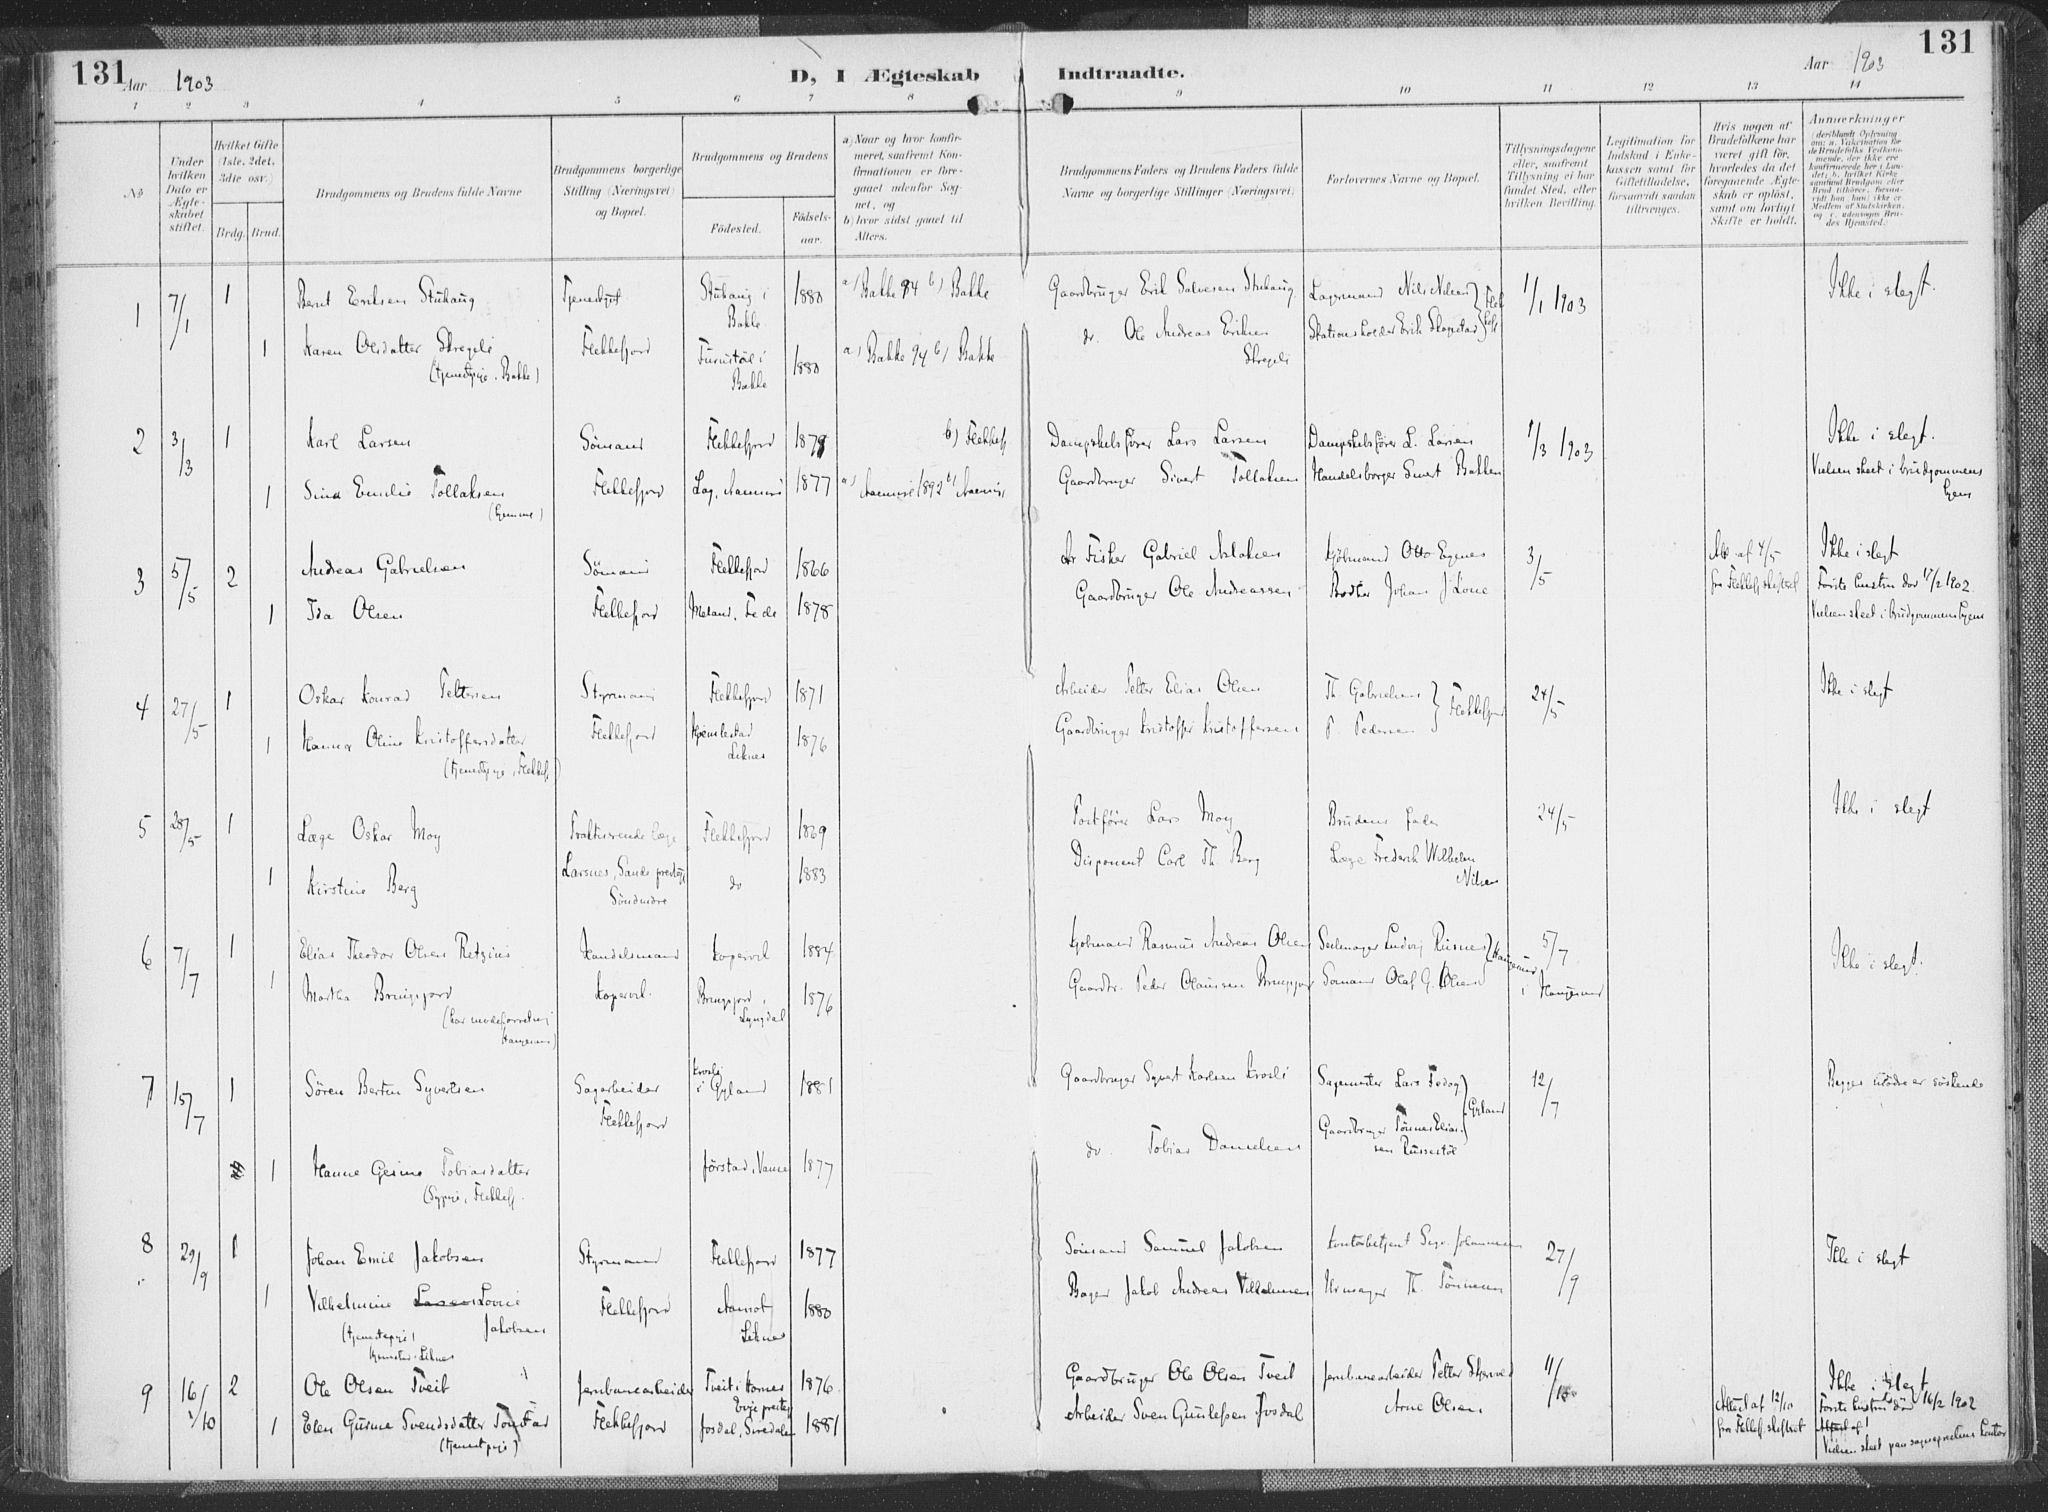 131
Aar 1903
D, I Ægteskab Indtraadte.
Aar 1903
131
1 2 3 4 5 6 7 8 9 10 11 12 13 14
No
Under hvilken Dato er Ægteskabet stiftet.
Hvilket Gifte (1ste, 2det, 3die osv.)
Brdg. Brud.
Brudgommens og Brudens fulde Navne
Brudgommens borgerlige Stilling (Næringsvei) og Bopæl.
Brudgommens og Brudens
Fødested.
Fødselsaar.
a) Naar og hvor konfirmeret, saafremt Konfirmationen er foregaaet udenfor Sognet, og
b) hvor sidst gaaet til Alters.
Brudgommens Faders og Brudens Faders fulde Navne og borgerlige Stillinger (Næringsvei).
Forlovernes Navne og Bopæl.
Tillysningsdagene eller, saafremt Tillysning ei har fundet Sted, efter hvilken Bevilling.
Legitimation for Indskud i Enkekassen samt for Giftetilladelse, forsaavidt saadan tiltrænges.
Hvis nogen af Brudefolkene har været gift før, hvorledes da det foregaaende Ægteskab er opløst, samt om lovligt Skifte er holdt.
Anmærkninger
1 7/1 1 Berut Eriksen Stuhaug Tjenestgut Stuhaug i Bakke 1880 a) Bakke 94 b) Bakke Gaardbruger Erik Salvesen Stuhaug Lagsmand Nils Nilsen 1/1 1903 Ikke i slegt.
1 Karen Olsdatter Skregeli (tjenestpige, Bakke) Flekkefjord Furustøl i Bakke 1880 a) Bakke 94 b) Bakke do. Ole Andreas Eriksen Skregeli Stationsholder Erik
2 3/3 1 Karl Larsen Sømand Flekkefjord b) Flekkefj Dampskibsfører Lars Larsen Dampskibsfører L. Larsen 1/3 1903 Ikke i slegt.
1 Sina Emilie Tollaksen (hjemme) Flekkefjord 1877 1892 Gaardbruger Sivert Tollaksen Handelsborger Sivert Bakken Vielsen skeet i brudgommens hjem
3 5/5 2 Andreas Gabrielsen Sømand Flekkefjord 1866 Fisker Gabriel Aslaksen Kjøbmand Otto Egenes 3/5 af 4/5 fra Flekkefj skifteret Ikke i slegt Første hustru død 17/2 1902.
1 Ida Olsen Flekkefjord Meland, Feda 1878 Gaardbruger Ole Andreassen Johan J. Lone Vielsen skeet i brudgommens hjem
4 27/5 1 Oskar Konrad Pettersen Styrmand Flekkefjord 1871 Arbeider Petter Elias Olsen Th. Gabrielsen Flekkefjord 24/5 Ikke i slegt
1 Hanna Oline Kristoffersdatter (tjenestpige, Flekkefj) Flekkefjord Liknes 1876 Gaardbruger Kristoffer Kristoffersen P. Pedersen
5 28/5 1 Læge Oskar Moy Praktiserende læge Flekkefjord 1869 Postfører Lars Moy Brudens fader 24/5 Ikke i slegt
1 Kirstine Berg Larsnes, Sande prestegj Søndmøre do 1883 Disponent Carl Th. Berg Læge Frederik Wilhelm Nilsen
6 7/7 1 Elias Theodor Olsen Retzius Handelsmand Kopervik 1884 Kjøbmand Rasmus Andreas Olsen Seilmager Ludvig 5/7 Ikke i slegt.
1 Martha Bringsjord (har modeforretning Haugesund) Kopervik. Bringsjord, Lyngdal 1876 Gaardbr. Peder Olausen Bringsjord Sømand Olaf G. Olsen i Haugesund
7 15/7 1 Søren Bertin Syvertsen Sagarbeider Flekkefjord Krosli i Gyland 1881 Gaardbruger Syvert Karlsen Krosli Sagmester Lars Gyland 12/7 Begges mødre er søskende
1 Hanne Gesine Tobiasdatter (Sypige, Flekkefj. 1877 do. Tobias Danielsen Gaardbruger Tønnes Eliassen
8 29/9 1 Johan Emil Jakobsen Styrmand Flekkefjord 1877 Sømand Samuel Jakobsen Kontorbetjent Sigv. Johannesen 27/9 Ikke i slegt
1 Vilhelmine Lovise Jakobsen (tjenestepige) Flekkefjord Aamot Liknes 1880 Bager Jakob Andreas Vilhelmsen Urmager Th. Tønnesen
9 16/10 2 Ole Olsen Tveit Jernbanearbeider Tveit i Hornes Evje prestegj 1876. Gaardbruger Ole Olsen Tveit Jernbanearbeider Petter 11/10 Attest af 12/10 fra Flekkefj. skifteret Ikke i slegt Første hustru død 16/2 1902
1 Elen Gurine Svendsdatter (tjenestpige) Flekkefjord Josdal, Siredalen 1881 Arbeider Sven Gunlefsen Josdal Arne Olsen Vielsen skeet paa sogneprestens kontor